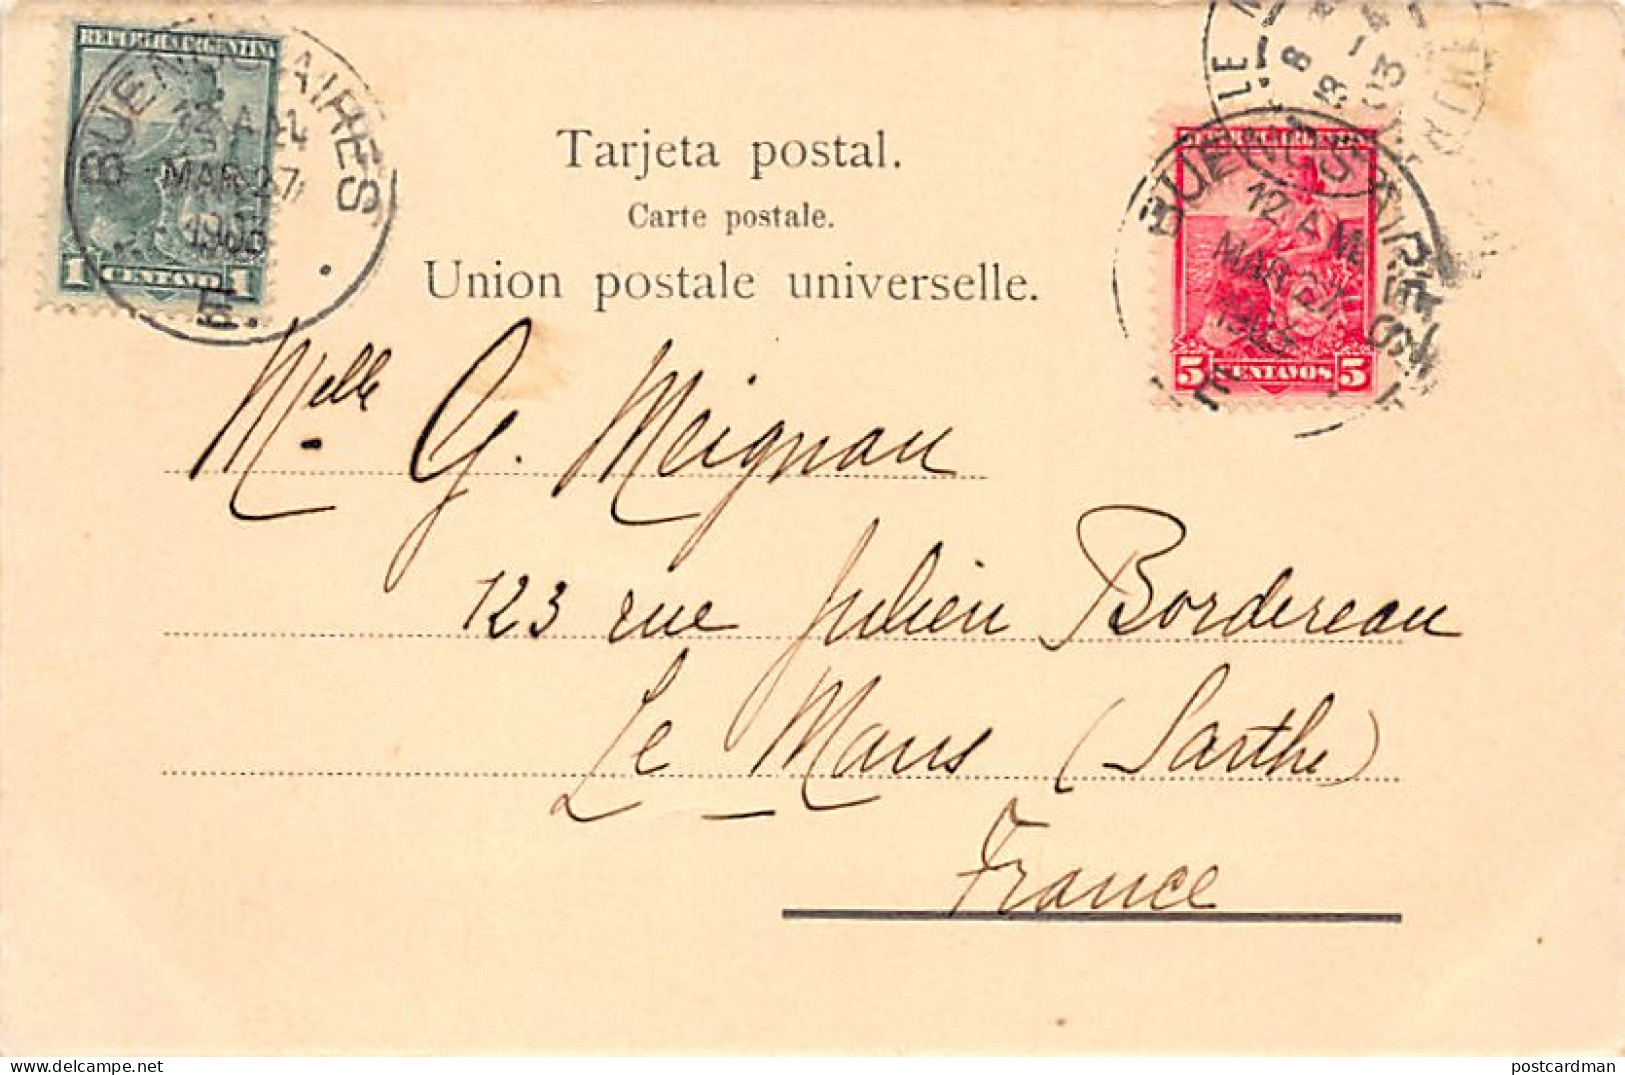 REPUBLICA ARGENTINA
BUENOS AIRES
12 A M
MAR 27
1903
1 CENTAVO 1
LE
03
Tarjeta postal.
Carte postale.
Union postale universelle.
BUENOS AIRES
12 A M
MAR 27
1903
5 CENTAVOS 5
Mlle G. Meignan
123 rue Julien Bordereau
Le Mans (Sarthe)
France
postcardman